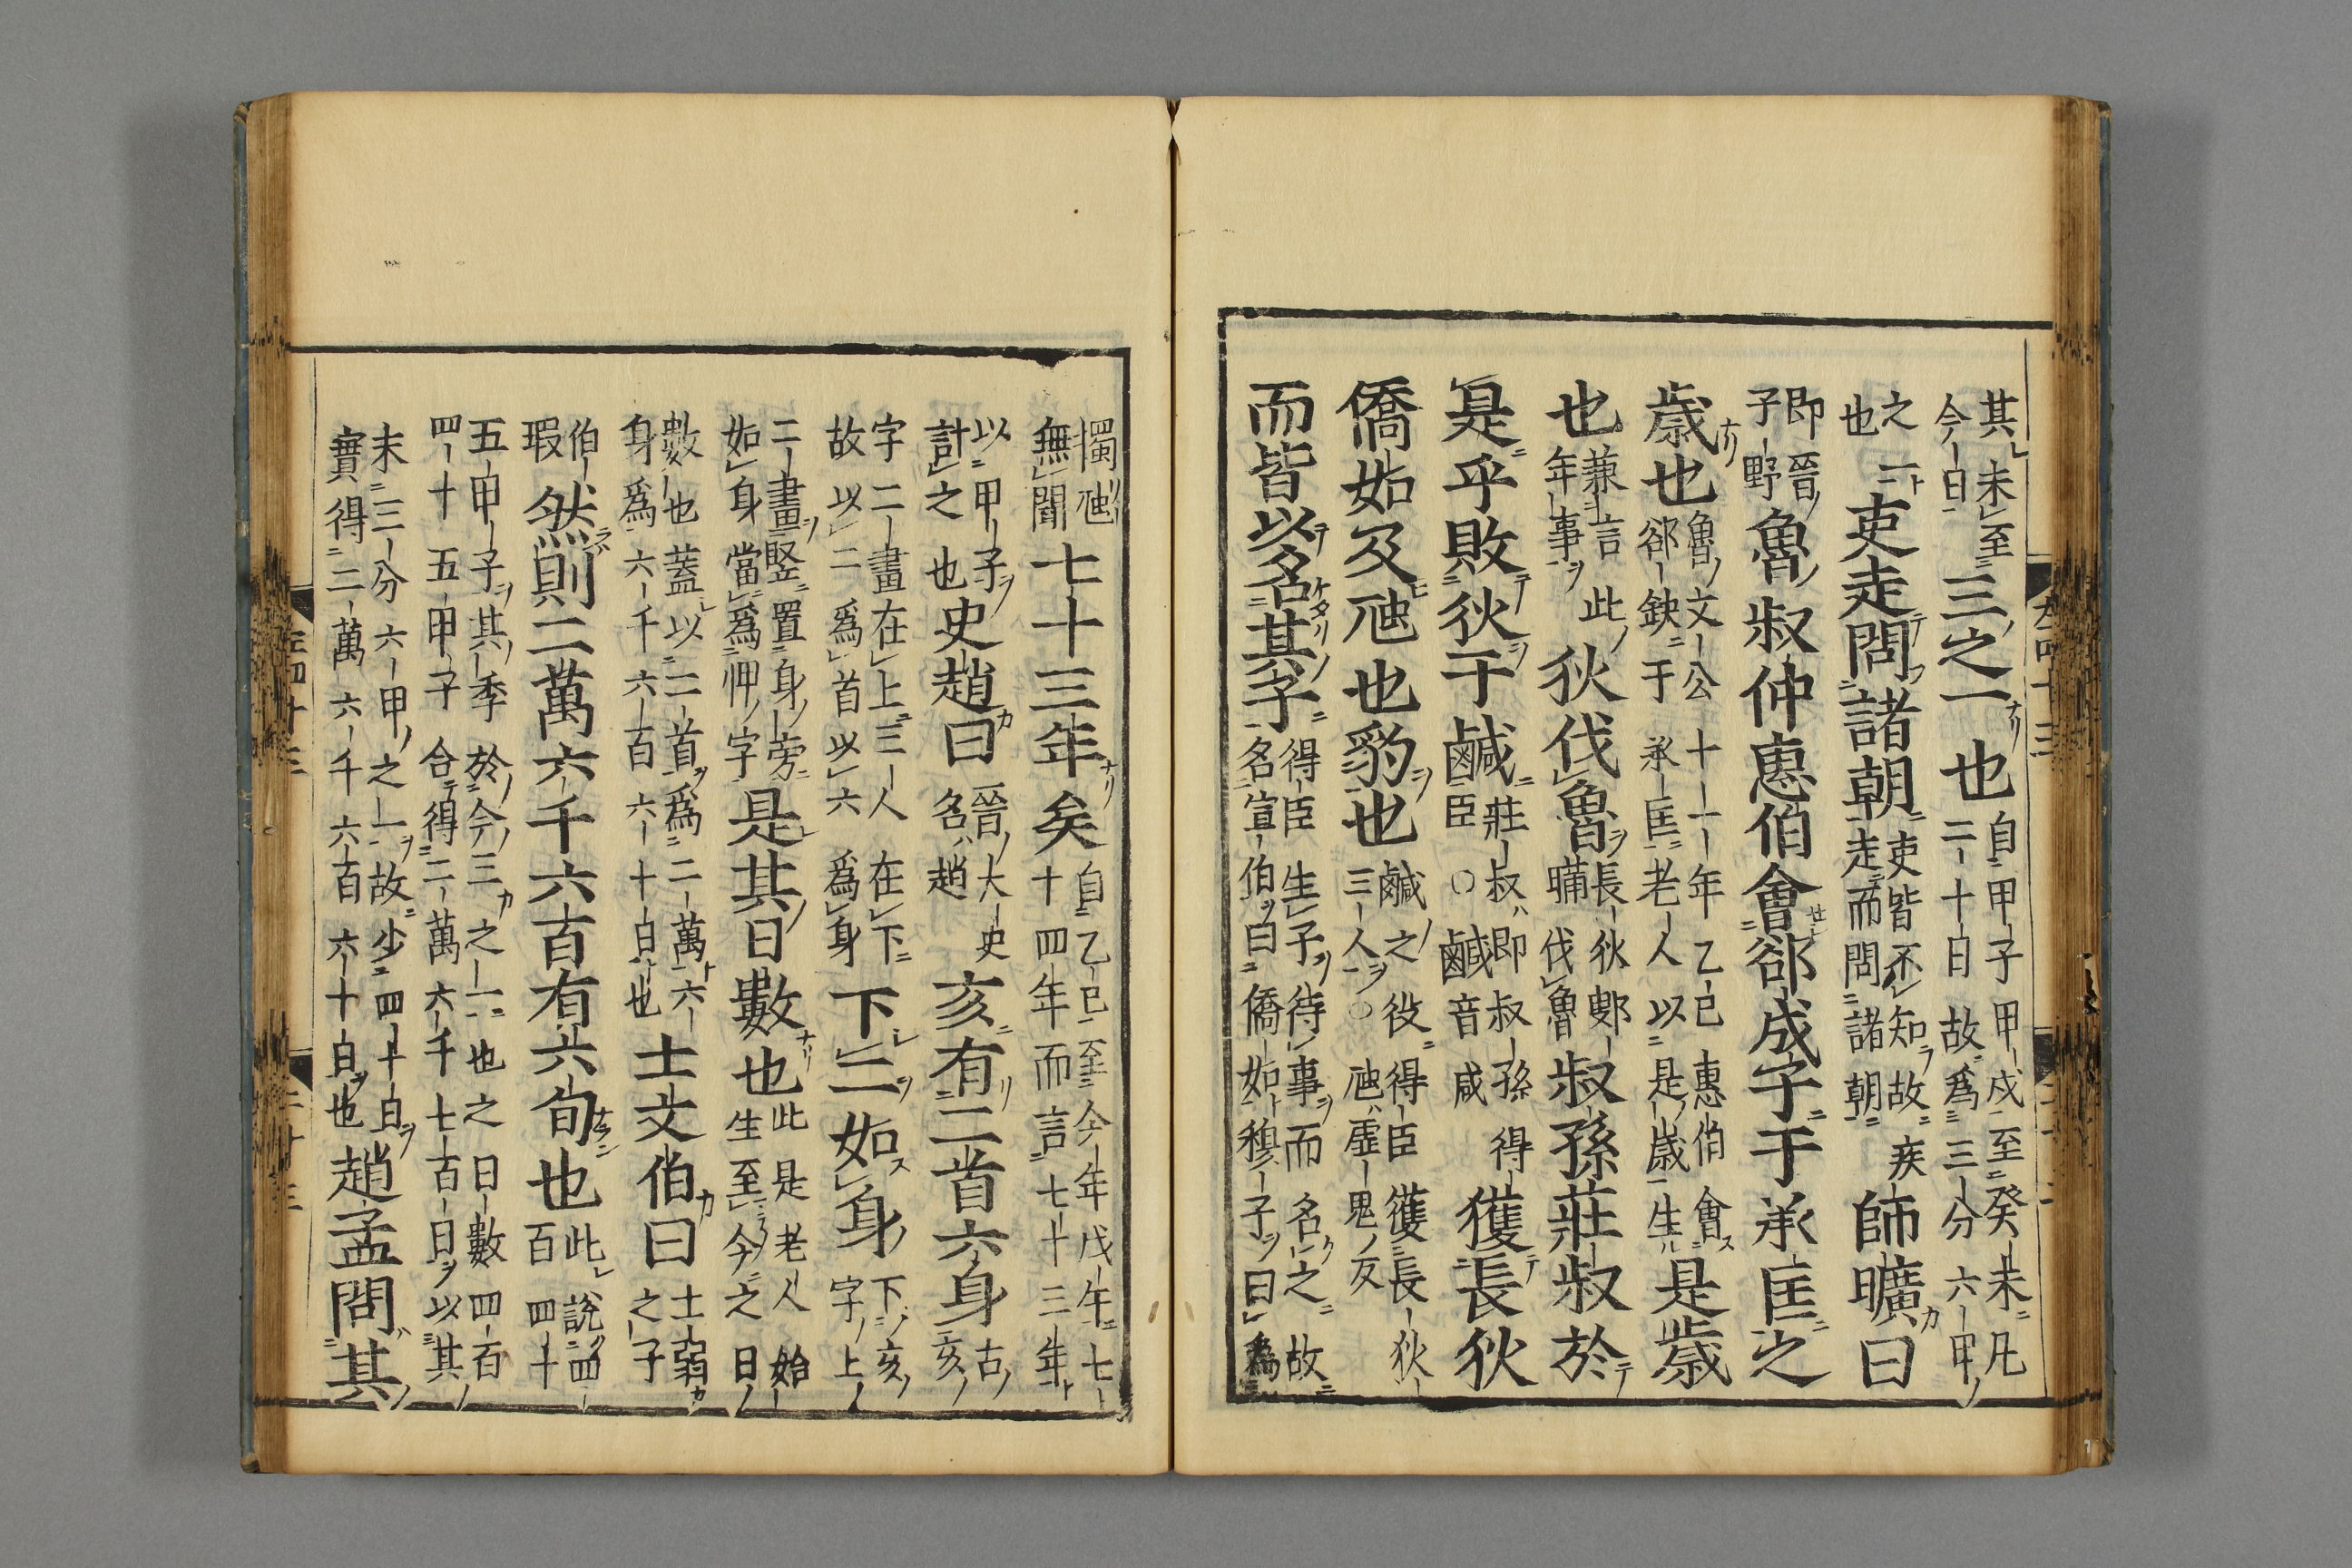 其未至三之一也自甲子甲戌至癸未凡
今日二十日故爲三分六甲
之一吏走問諸朝吏皆不知故疾師曠曰
也走而問諸朝
即晉魯叔仲惠伯會郤成子于承匡之
子野
歲也魯文公十一年乙巳惠伯會是歲
郤缺于承匡老人以是歲生
也蒹言此狄伐魯長狄鄋叔孫莊叔於
年事瞞伐魯
是乎敗狄于鹹莊叔即叔孫得獲長狄
臣〇鹹音咸
僑如及虺也豹也鹹之役得臣獲長狄
三人〇虺虛鬼反
而皆以名其子得臣生子待事而名之故
名宣伯曰僑如穆子曰爲
左四十三
二十二
獨虺七十三年矣自乙巳至今年戊午七
無聞十四年而言七十三年
以甲子史趙曰晉大史亥有二首六身古
計之也名趙亥
字二畫在上三人在下下二如身下亥
故以二爲首以六爲身字上
二畫竪置身旁是其日數也此是老人始
如身當爲𰯌字生至今之日
數也蓋以二首爲二萬六士文伯曰士弱
身爲六千六百六十日也之子
伯然則二萬六千六百有六旬也此說四
瑕百四十
五甲子其季於今三之一也之日數四百
四十五甲子合得二萬六千七百日以其
末三分六甲之一故少四十日趙孟問其
實得二萬六千六百六十日也
左四十三
二十三